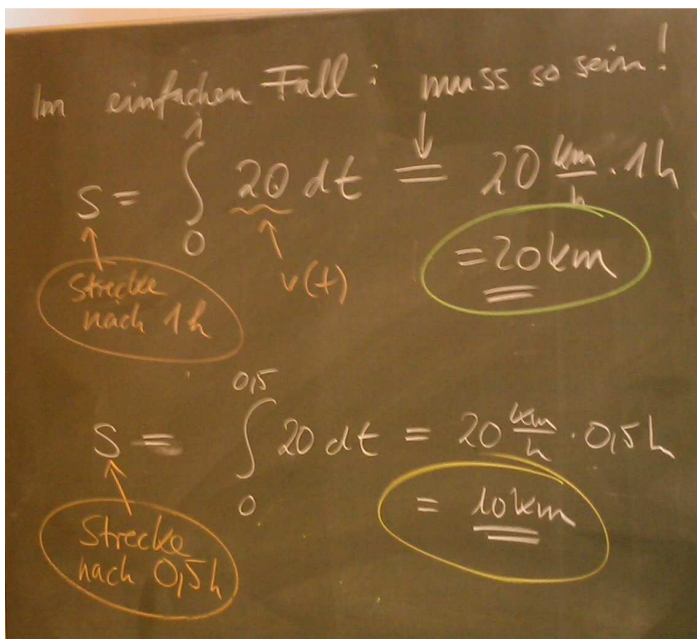 Im einfachen Fall: muss so sein!
s = ∫₀¹ 20 dt = 20 km/h · 1h
= 20km
v(t)
Strecke
nach 1h
s = ∫₀^0,5 20 dt = 20 km/h · 0,5h
= 10km
Strecke
nach 0,5h